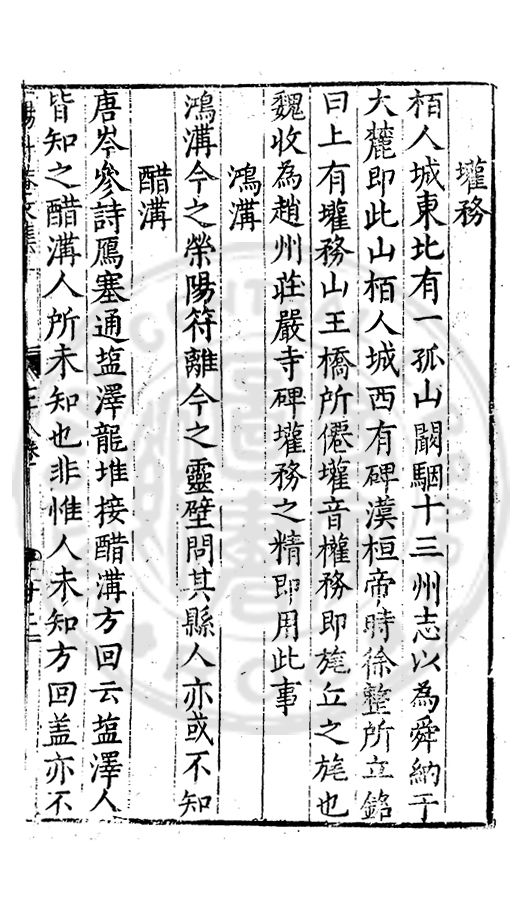 壠務
栢人城東北有一孤山闞駰十三州志以為舜納于
大麓即此山栢人城西有碑漢桓帝時徐整所立銘
曰上有巏務山王橋所僊巏音權務即旄丘之旄也
魏收為趙州莊嚴寺碑巏務之精即用此事
鴻溝
鴻溝今之滎陽符離今之靈壁問其縣人亦或不知
醋溝
唐岑參詩鴈塞通塩澤龍堆接醋溝方回云塩澤人
皆知之醋溝人所未知也非惟人未知方回盖亦不